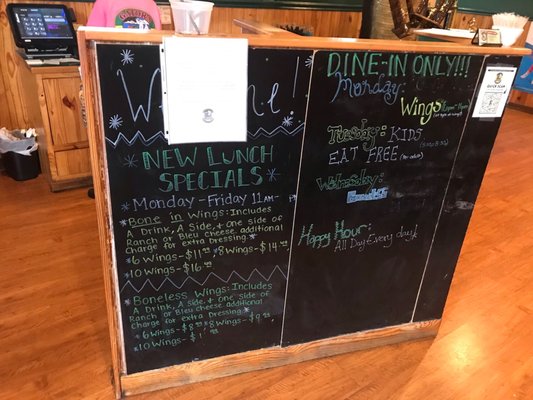 DINE-IN ONLY!!!
Monday:
Wings
Tuesday: KIDS
EAT FREE
Wednesday:
Happy Hour:
All Day Everyday
NEW LUNCH
SPECIALS
Monday-Friday 11AM-
*Bone in Wings: Includes
A Drink, A Side, + one side of
Ranch or Bleu cheese additional
Charge for extra dressing.*
*6 Wings-$11.49 *8 Wings-$14
*10 Wings-$16
*Boneless Wings: Includes
A Drink, A side, + one side of
Ranch or Bleu cheese additional
charge for extra dressing.*
*6 Wings-$8 *8 Wings-$9
*10 Wings-$1